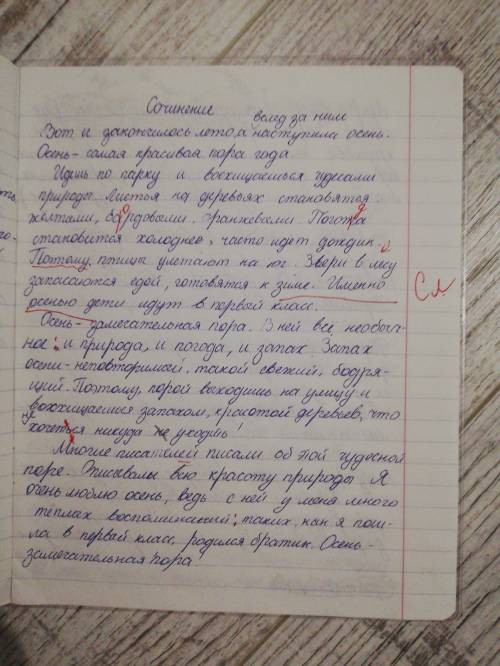 Сочинение
вслед за ним
Вот и закончилось лето, а наступила осень.
Осень - самая красивая пора года
Идешь по парку и восхищаешься чудесами
природы. Листья на деревьях становятся
жёлтыми, бардовыми, оранжевыми. Погода
становится холоднее, часто идет дождик.
Поэтому птицы улетают на юг. Звери в лесу
запасаются едой, готовятся к зиме. Именно
осенью дети идут в первый класс.
Сл
Осень - замечательная пора. В ней всё необыч-
ное: и природа, и погода, и запах. Запах
осени - неповторимый, такой свежий, бодря-
щий. Поэтому, порой выходишь на улицу и
восхищаешься запахом, красотой деревьев, что
не хочется никуда уходить!
Многие писатели писали об этой чудесной
поре. Описывали всю красоту природы. Я
очень люблю осень, ведь с ней у меня много
тёплых воспоминаний: таких, как я пош-
ла в первый класс, родился братик. Осень -
замечательная пора!